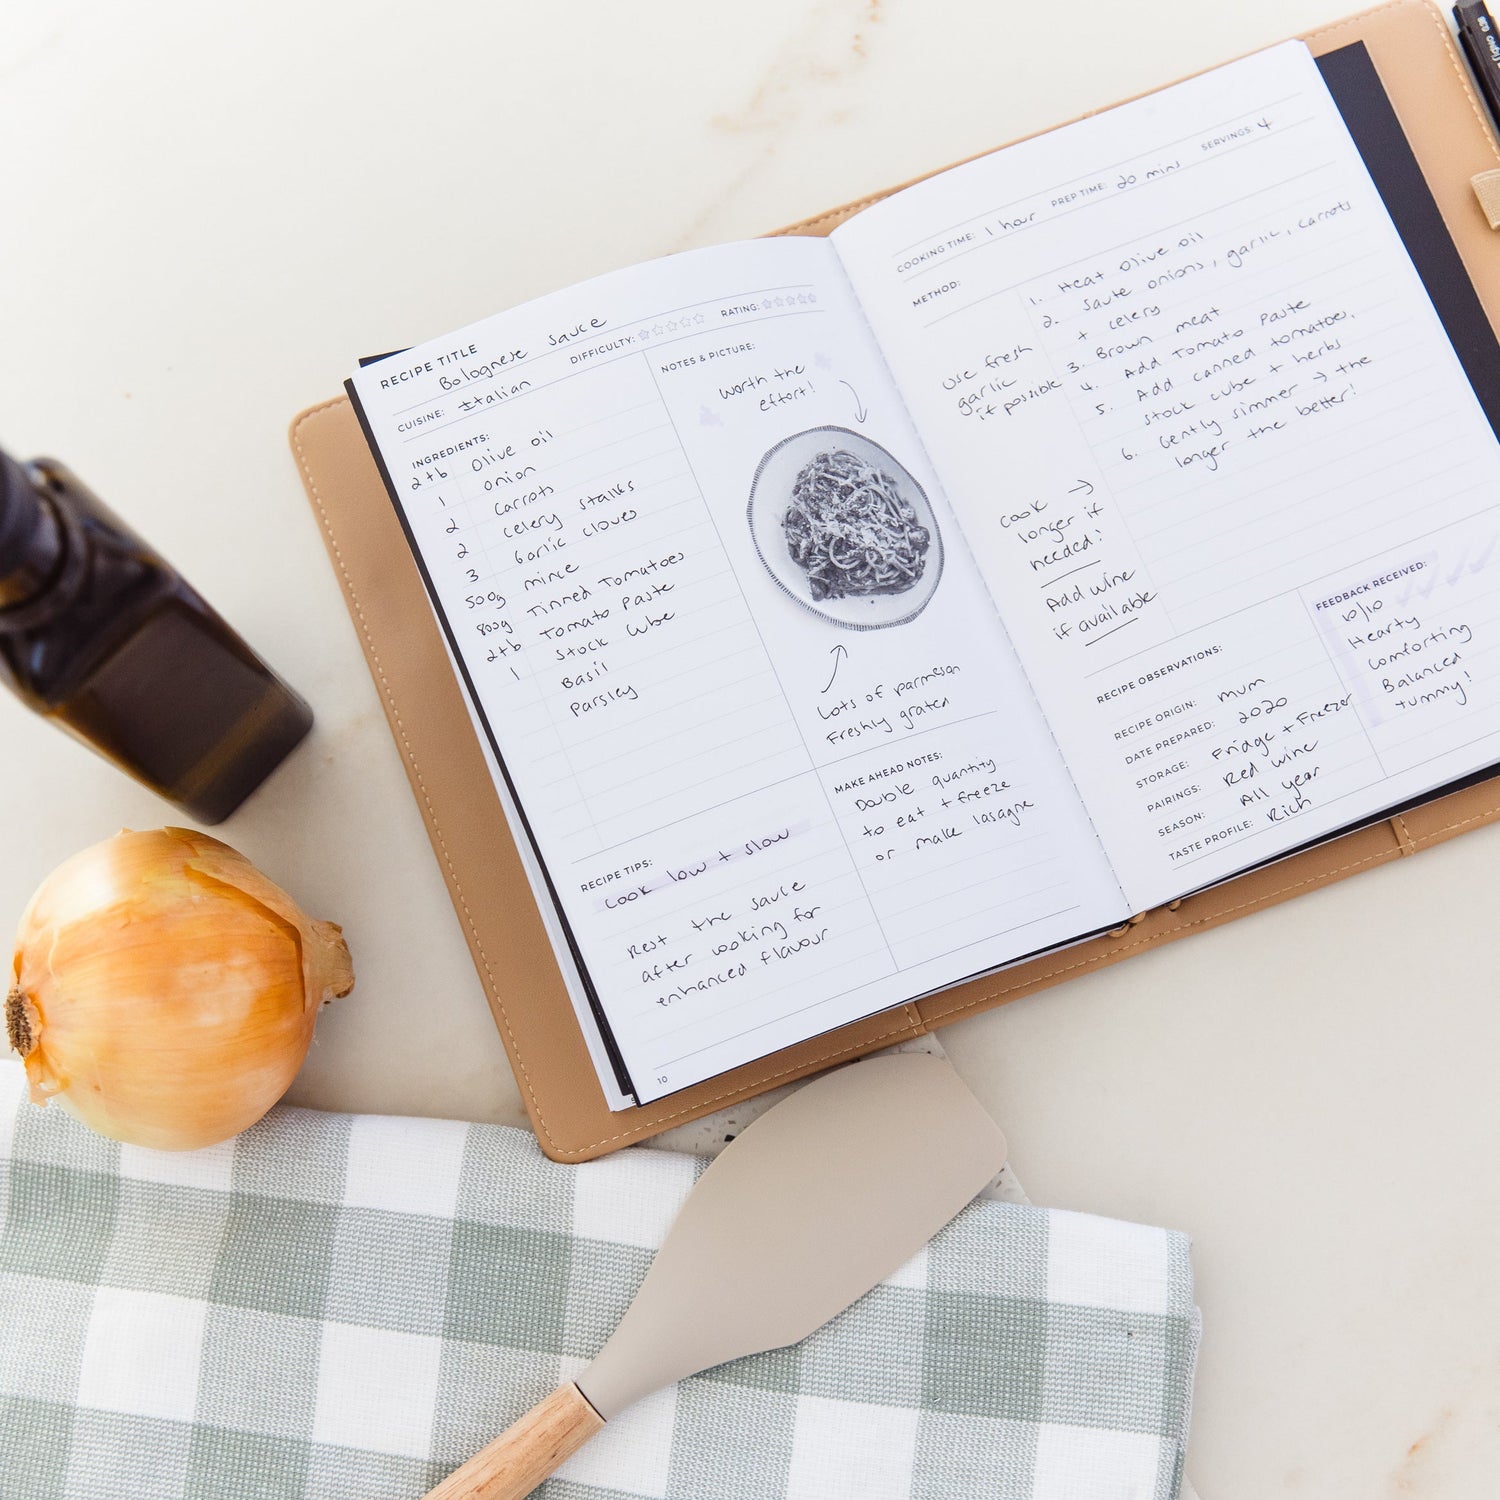 RECIPE TITLE
Bolognese Sauce
CUISINE: Italian
DIFFICULTY:
RATING:
INGREDIENTS:
2tb Olive oil
1 onion
2 Carrots
2 celery stalks
3 Garlic cloves
500g mince
800g Tinned Tomatoes
2tb Tomato Paste
1 Stock Cube
Basil
Parsley
NOTES & PICTURE:
Worth the
effort!
Lots of parmesan
Freshly grated
RECIPE TIPS:
Cook low + slow
Rest the sauce
after cooking for
enhanced flavour
MAKE AHEAD NOTES:
Double quantity
to eat + freeze
or make lasagne
10
COOKING TIME: 1 hour PREP TIME: 20 mins SERVINGS: 4
METHOD:
1. Heat Olive oil
2. Saute onions, garlic, carrots
+ celery
3. Brown meat
4. Add Tomato Paste
5. Add canned tomatoes,
stock cube + herbs
6. Gently simmer → the
longer the better!
Use fresh
garlic
if possible
Cook →
longer if
needed!
Add wine
if available
RECIPE OBSERVATIONS:
RECIPE ORIGIN: mum
DATE PREPARED: 2020
STORAGE: Fridge + Freezer
PAIRINGS: Red wine
SEASON: All year
TASTE PROFILE: Rich
FEEDBACK RECEIVED:
10/10
Hearty
Comforting
Balanced
Yummy!